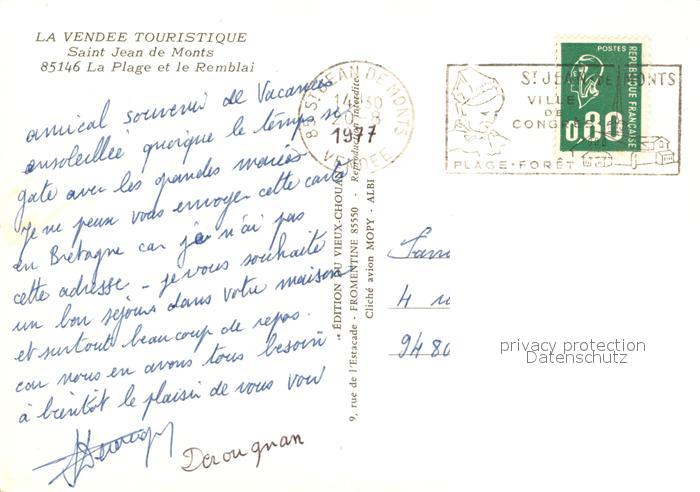 LA VENDEE TOURISTIQUE
Saint Jean de Monts
85146 La Plage et le Remblai
amical souvenir de Vacances
ensoleillée quoique le temps se
gate avec les grandes marées
je ne peux vous envoyer cette carte
en Bretagne car je n'ai pas
cette adresse - je vous souhaite
un bon séjours dans votre maison
et surtout beaucoup de repos.
car nous en avons tous besoin
à bientôt le plaisir de vous voir
Derougnan
85 ST JEAN DE MONTS
14H30
20-8
1977
VENDEE
ST JEAN DE MONTS
VILLE
DE
CONGRES
PLAGE-FORÊT
POSTES
REPUBLIQUE FRANÇAISE
0,80
ÉDITION DU VIEUX-CHOUAN
9, rue de l'Estacade - FROMENTINE 85550 - Reproduction Interdite
Cliché avion MOPY - ALBI
4
9480
privacy protection
Datenschutz